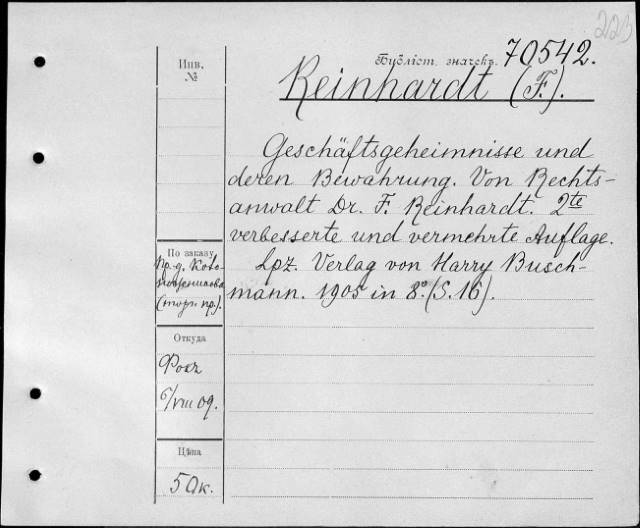 223
Бубліот. значекъ. 70542.
Reinhardt (F.).
Инв.
№
Geschäftsgeheimnisse und
deren Bewahrung. Von Rechts-
anwalt Dr. F. Reinhardt. 2te
verbesserte und vermehrte Auflage.
Lpz. Verlag von Harry Busch-
mann. 1905 in 8°. (S. 16).
По заказу
пр.-д.
(торг. пр.).
Откуда
6/VIII 09.
Цѣна
50к.